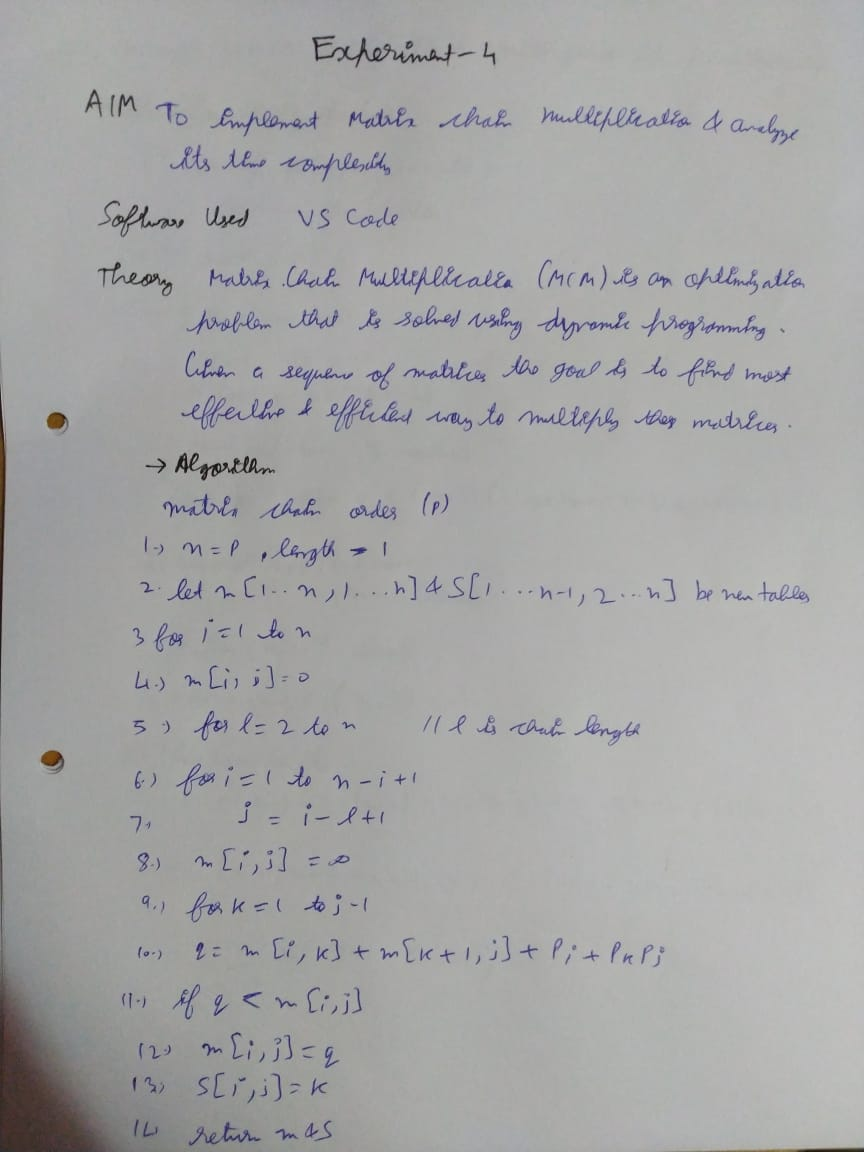 Experiment-4
AIM To implement Matrix chain Multiplication & analyze
its time complexity
Software Used VS Code
Theory Matrix Chain Multiplication (MCM) is an optimization
problem that is solved using dynamic programming.
Given a sequence of matrices the goal is to find most
effective & efficient way to multiply these matrices.
→ Algorithm
matrix chain order (P)
1.) n = P . length - 1
2. let m [1...n, 1...n] & S[1...n-1, 2...n] be new tables
3 for i = 1 to n
4.) m [i, i] = 0
5.) for l = 2 to n // l is chain length
6.) for i = 1 to n - i + 1
7. j = i - l + 1
8.) m [i, j] = ∞
9.) for k = 1 to j - 1
10.) q = m [i, k] + m[k + 1, j] + Pi + Pk Pj
11.) if q < m [i, j]
12.) m [i, j] = q
13.) S[i, j] = k
14. return m & S